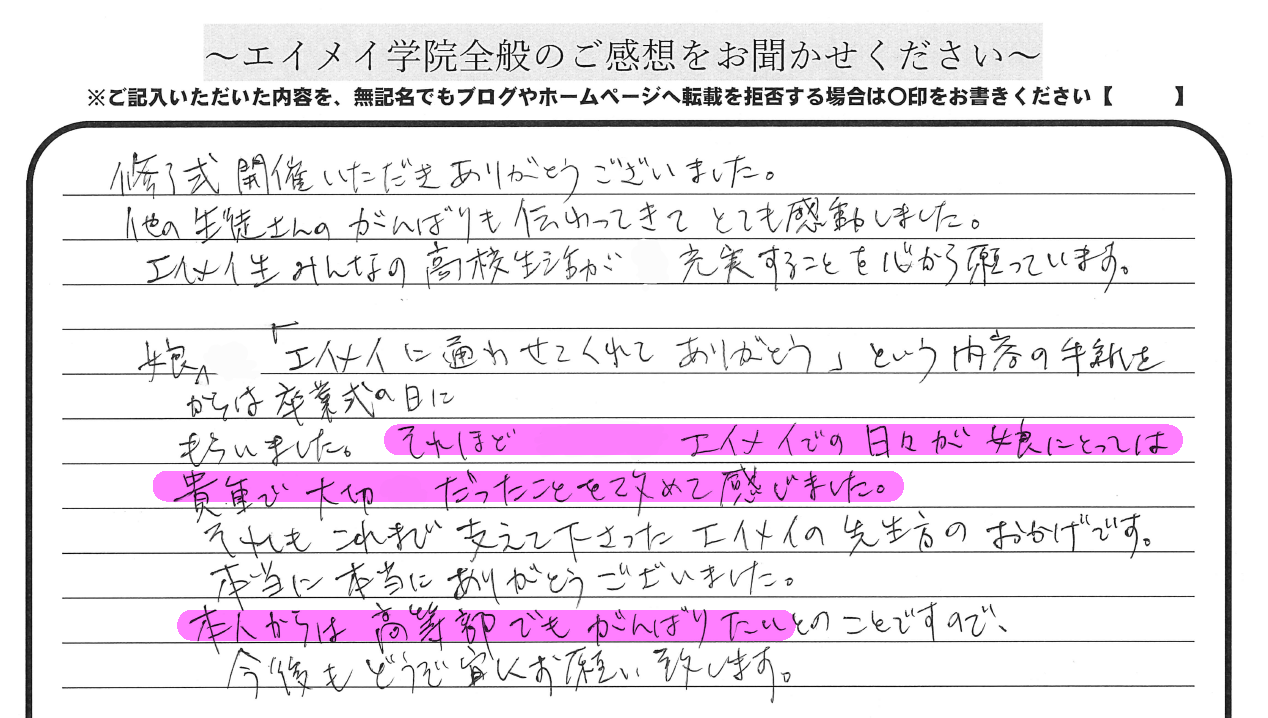 ～エイメイ学院全般のご感想をお聞かせください～
※ご記入いただいた内容を、無記名でもブログやホームページへ転載を拒否する場合は〇印をお書きください【　　】
修了式 開催いただきありがとうございました。
他の生徒さんの がんばりも 伝わってきて とても感動しました。
エイメイ生 みんなの 高校生活が 充実することを心から願っています。
娘 「エイメイに通わせてくれて ありがとう」という内容の手紙を
からは卒業式の日に
もらいました。それほど エイメイでの日々が 娘にとっては
貴重で 大切 だったことを改めて感じました。
それも これまで 支えて下さった エイメイの先生方の おかげです。
本当に 本当に ありがとうございました。
本人からは 高等部でも がんばりたいとのことですので、
今後も どうぞ宜しくお願い致します。